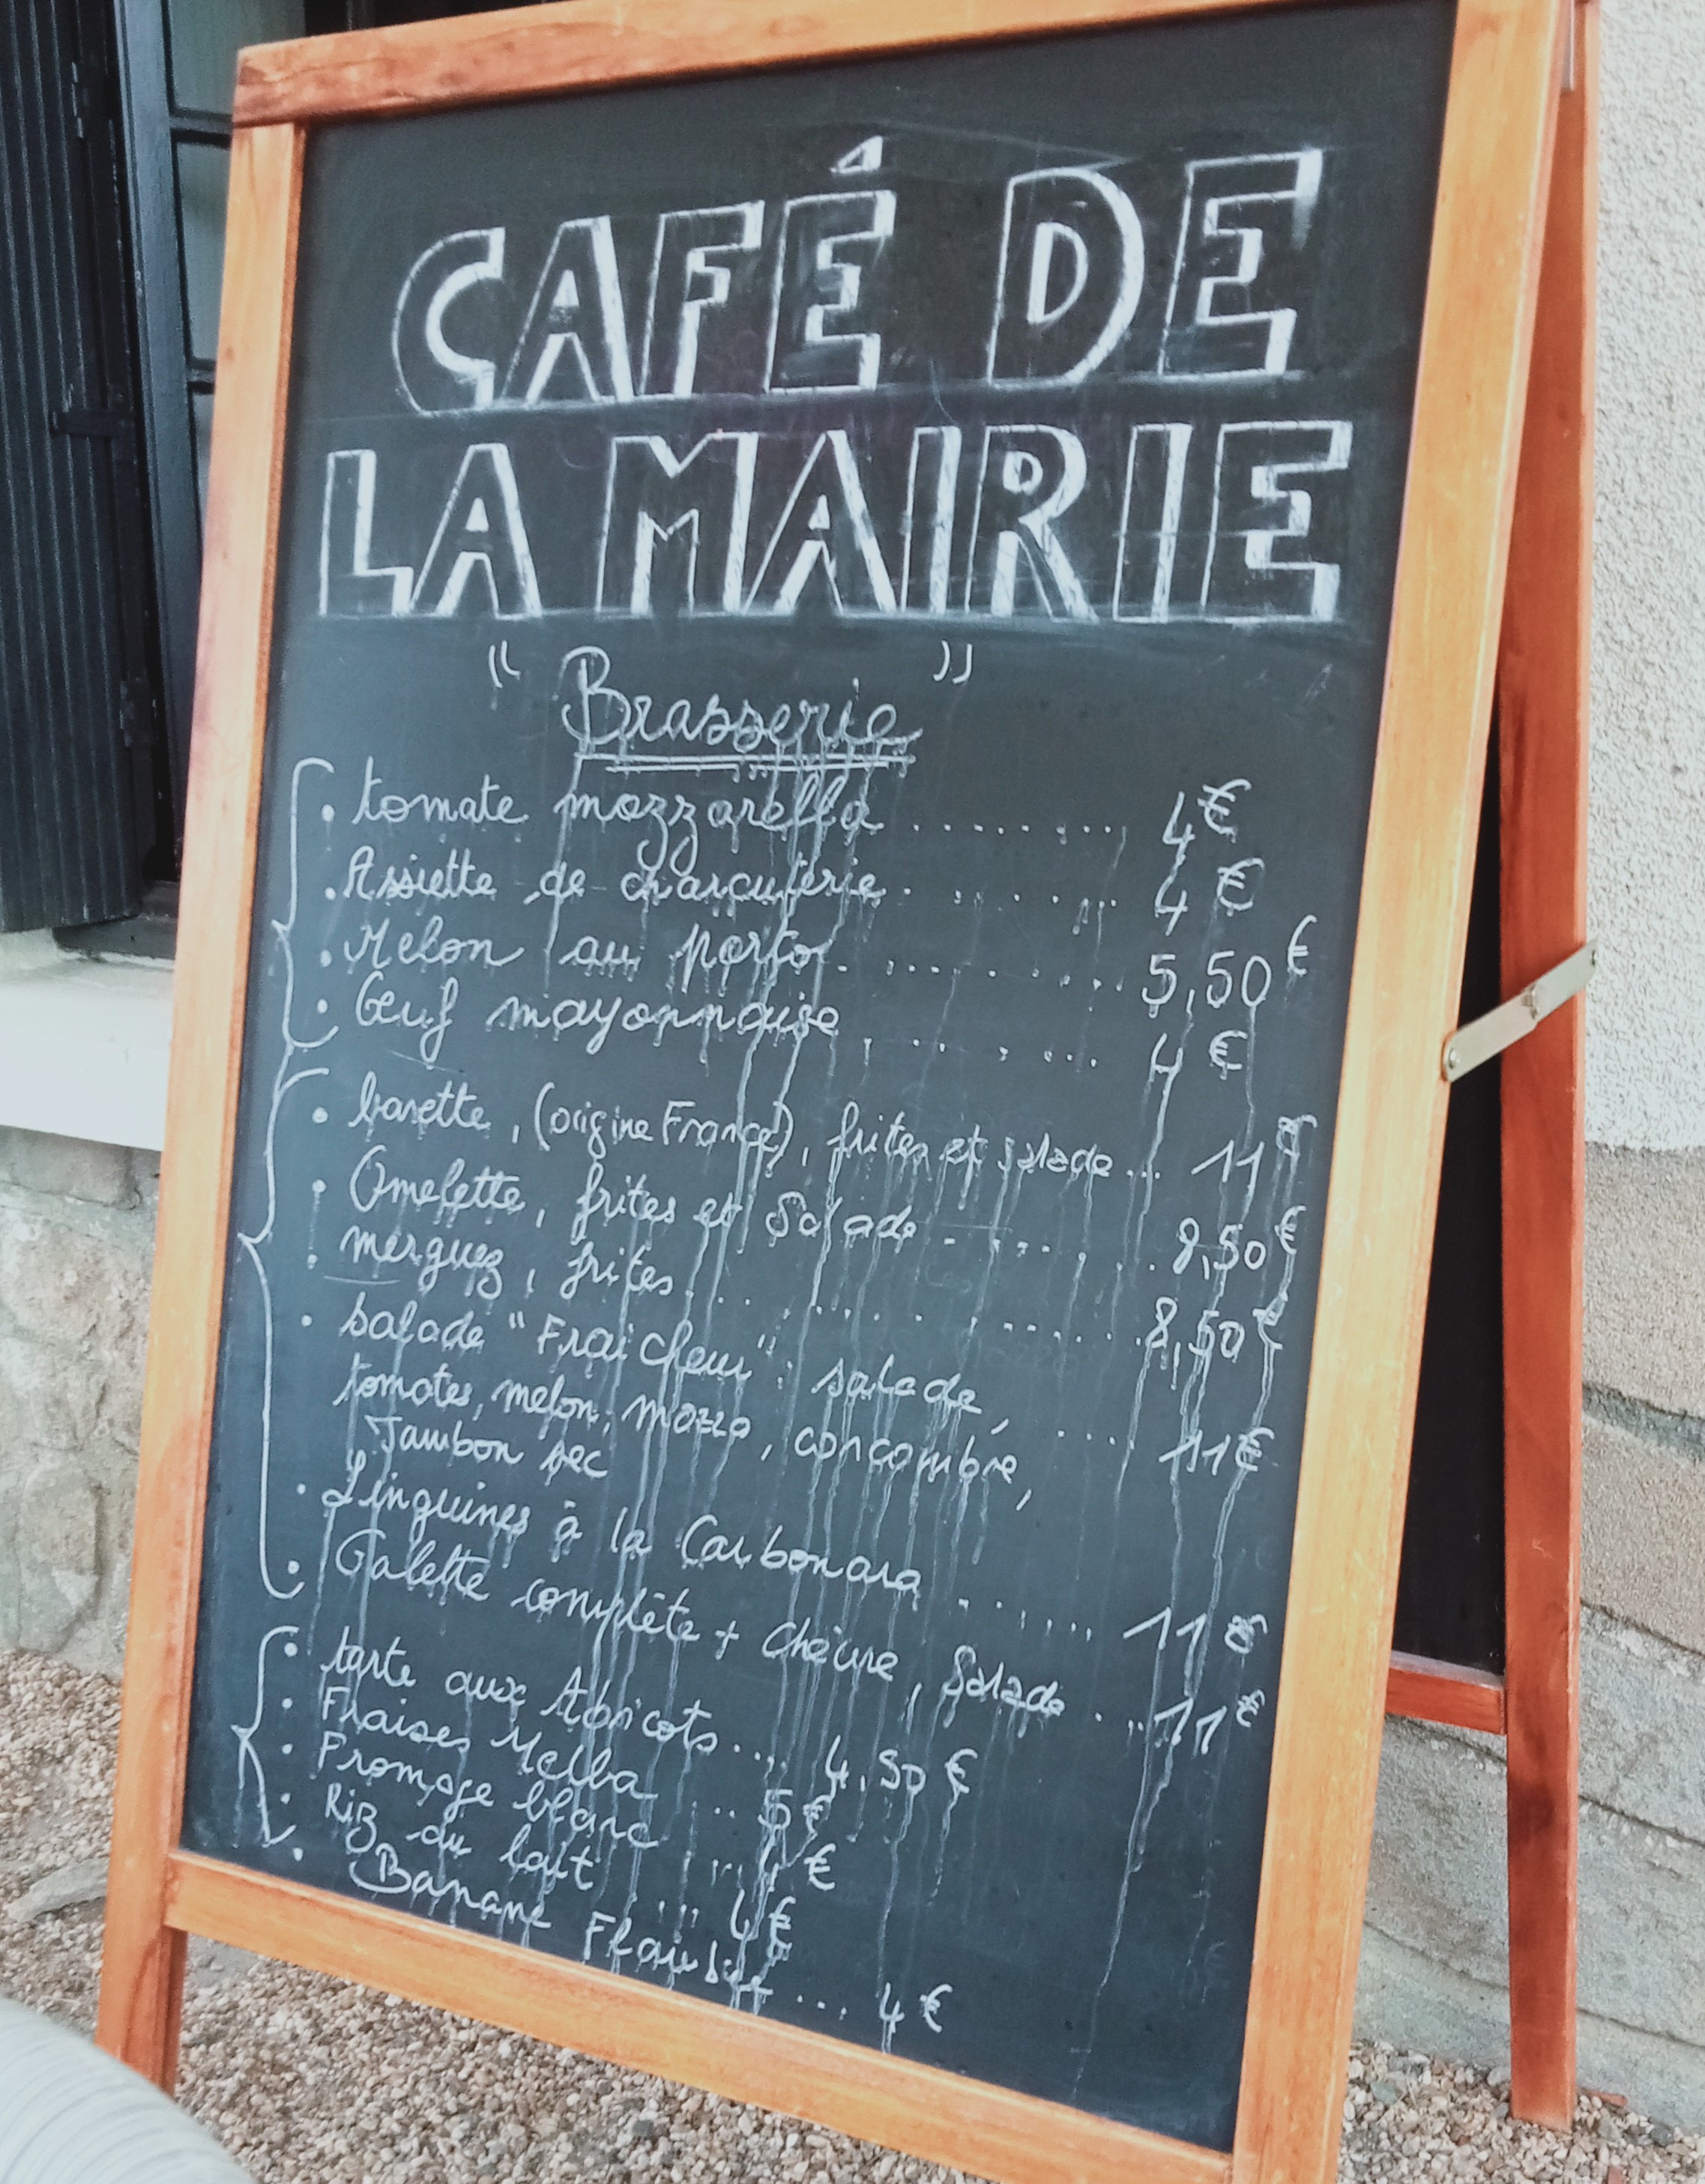 CAFÉ DE
LA MAIRIE
" Brasserie "
. tomate mozzarella ......... 4€
. Assiette de charcuterie. ........ 4€
. Melon au porto. .......... 5,50€
. Oeuf mayonnaise ........ 4€
. bavette, (origine France), frites et salade... 11€
. Omelette, frites et Salade ........ 8,50€
. merguez, frites ............... 8,50€
. salade "Fraîcheur": salade, .... 11€
tomates, melon, mozza, concombre,
Jambon sec
. Linguines à la Carbonara ....... 11€
. Galette complète + chèvre, Salade ... 11€
. tarte aux Abricots.... 4,50€
. Fraises Melba ... 5€
. Fromage blanc .... 4€
. Riz au lait .... 4€
. Banane Flambée ... 4€